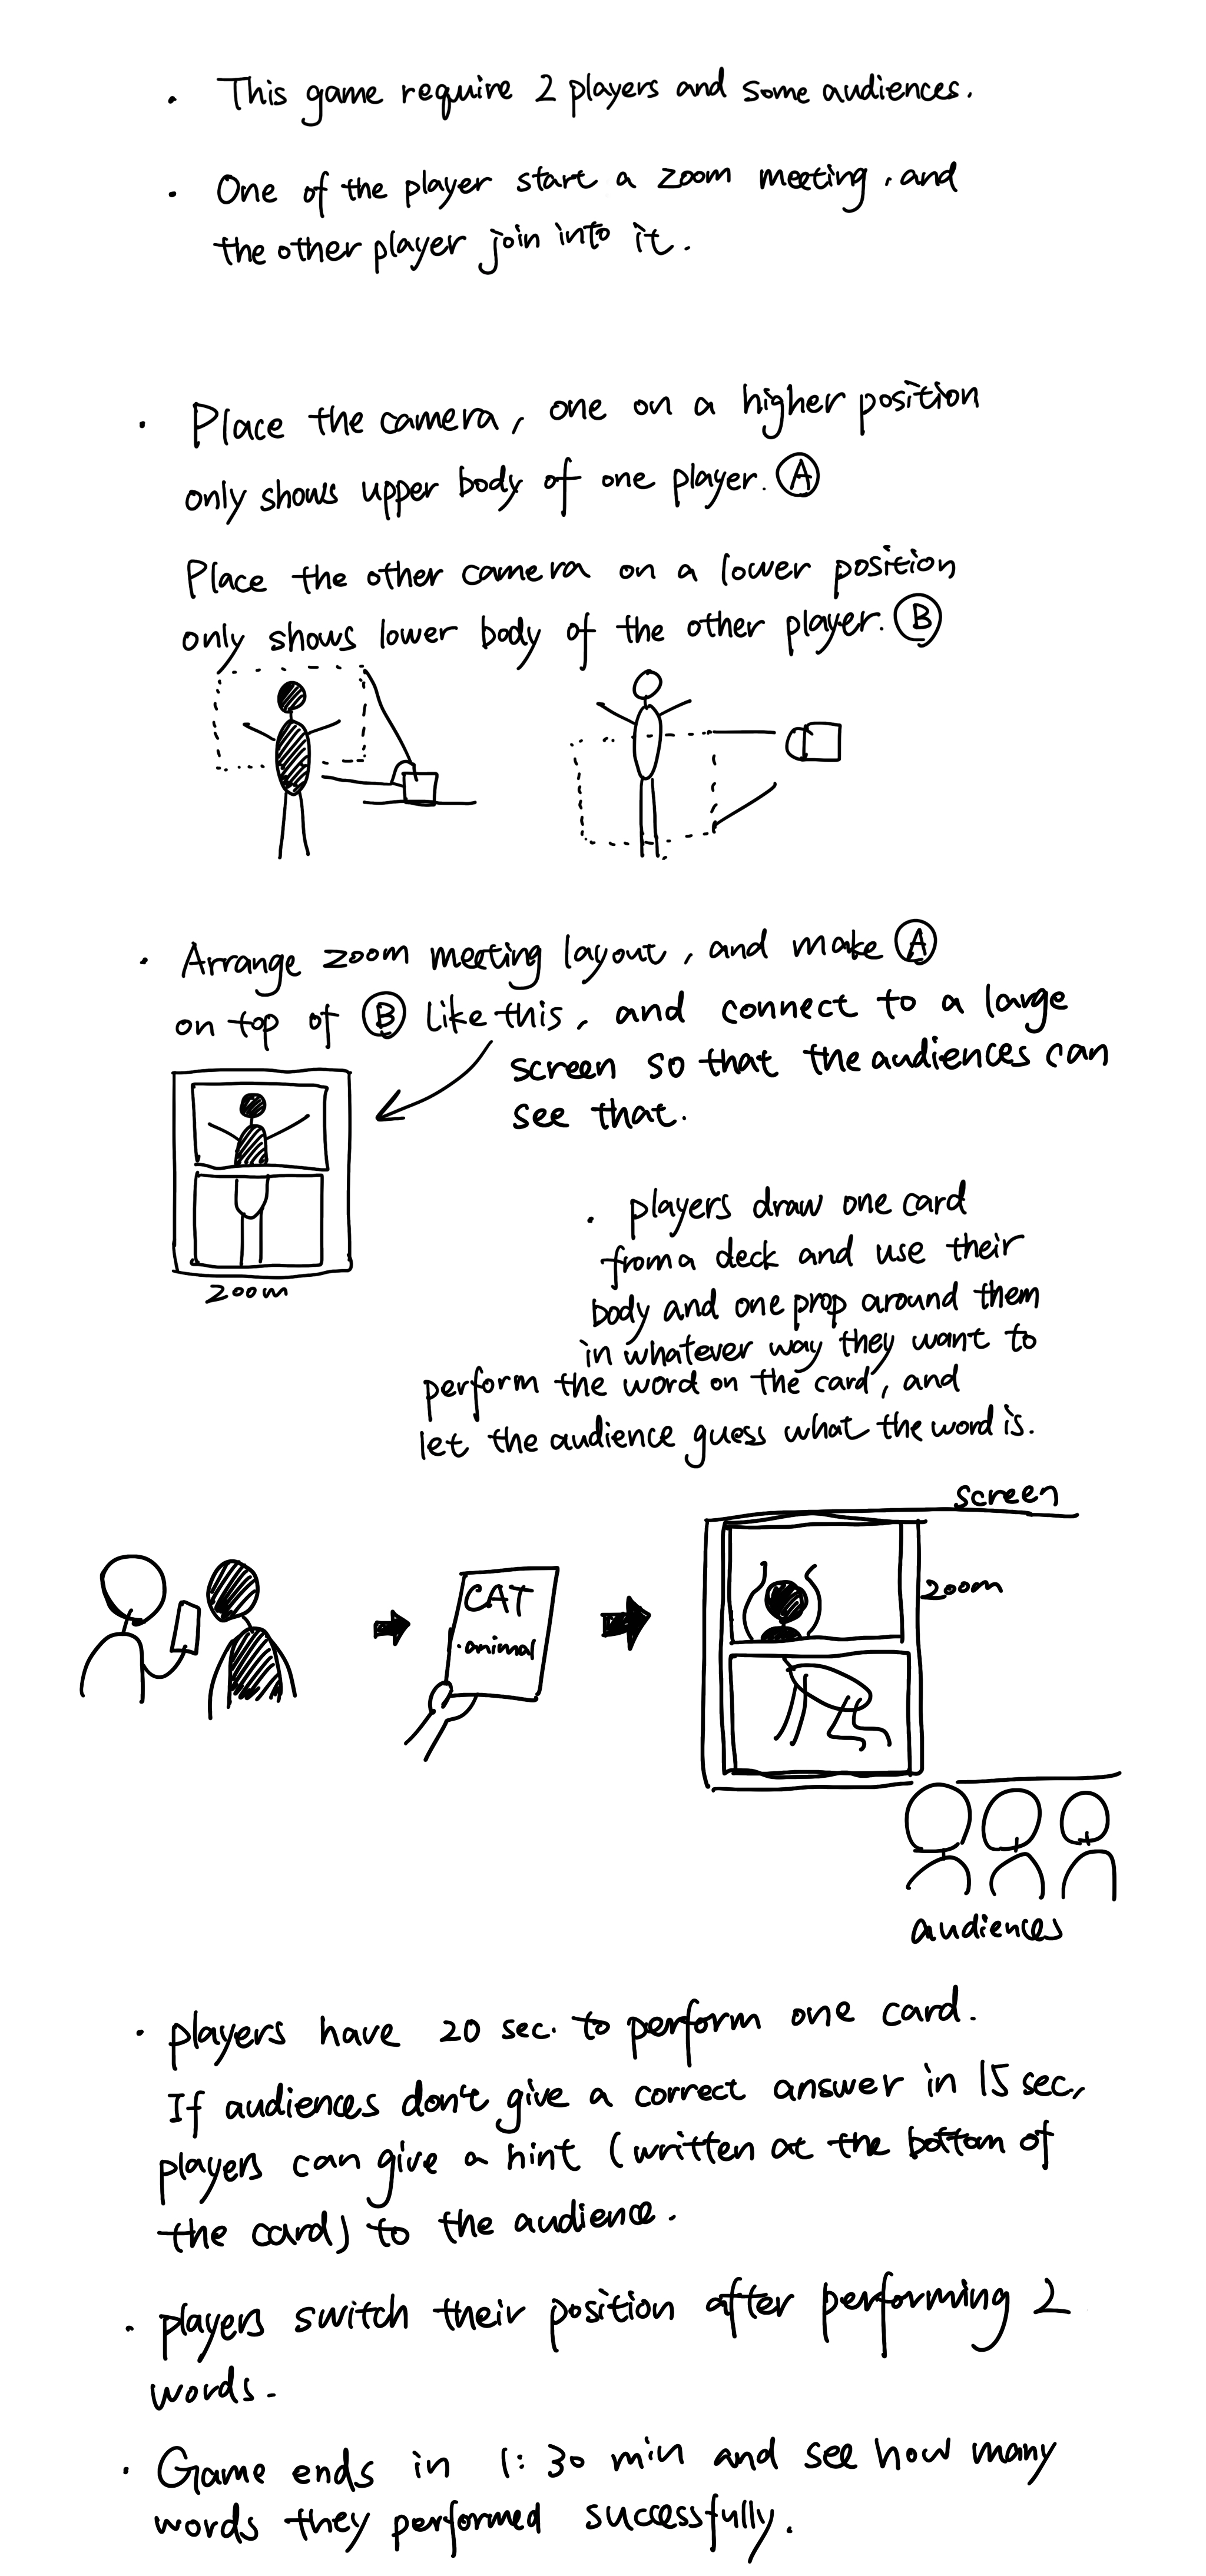 · This game require 2 players and some audiences.
· One of the player start a zoom meeting, and
the other player join into it.
· Place the camera, one on a higher position
only shows upper body of one player. Ⓐ
Place the other camera on a lower position
only shows lower body of the other player. Ⓑ
· Arrange zoom meeting layout, and make Ⓐ
on top of Ⓑ like this, and connect to a large
screen so that the audiences can
see that.
zoom
· players draw one card
from a deck and use their
body and one prop around them
in whatever way they want to
perform the word on the card, and
let the audience guess what the word is.
screen
zoom
CAT
·animal
audiences
· players have 20 sec. to perform one card.
If audiences don't give a correct answer in 15 sec,
players can give a hint (written at the bottom of
the card) to the audience.
· players switch their position after performing 2
words.
· Game ends in 1:30 min and see how many
words they performed successfully.